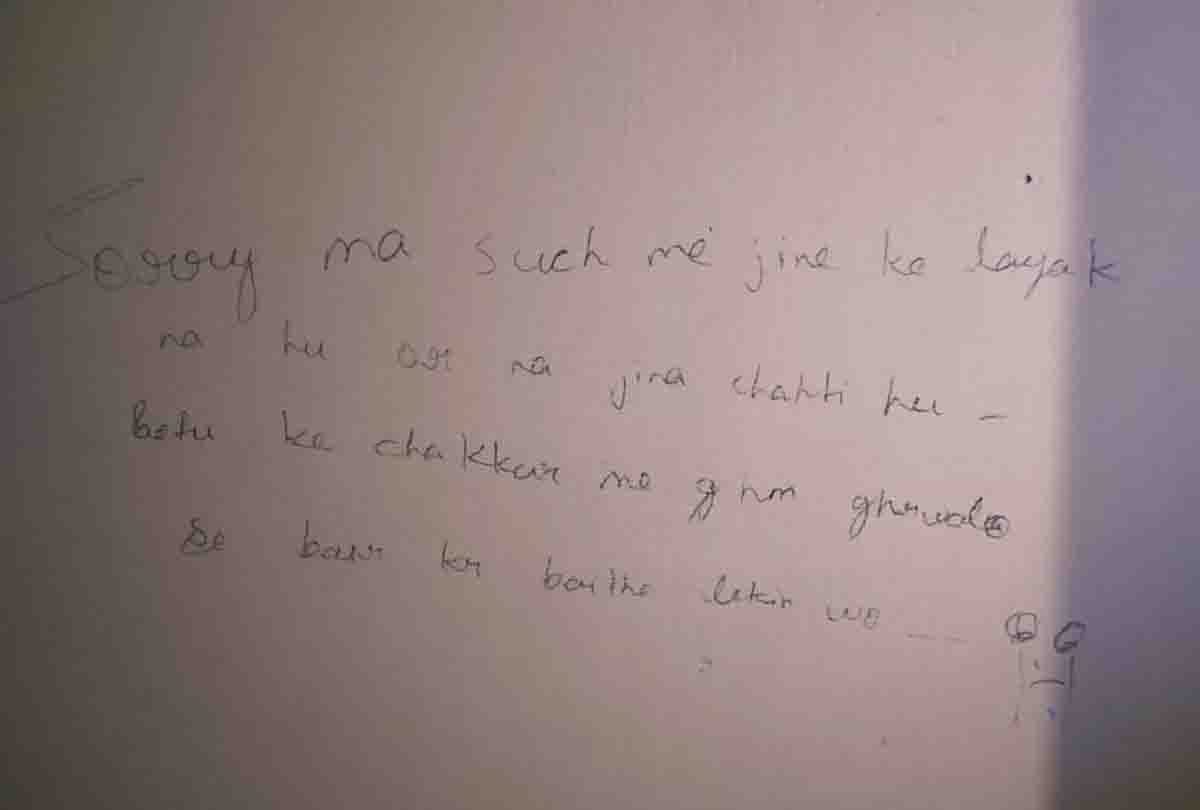 Sorry ma such me jine ke layak
na hu or na jina chahti hu -
betu ke chakkar me hm ghrwalo
se baur kr baithe lekin wo ---